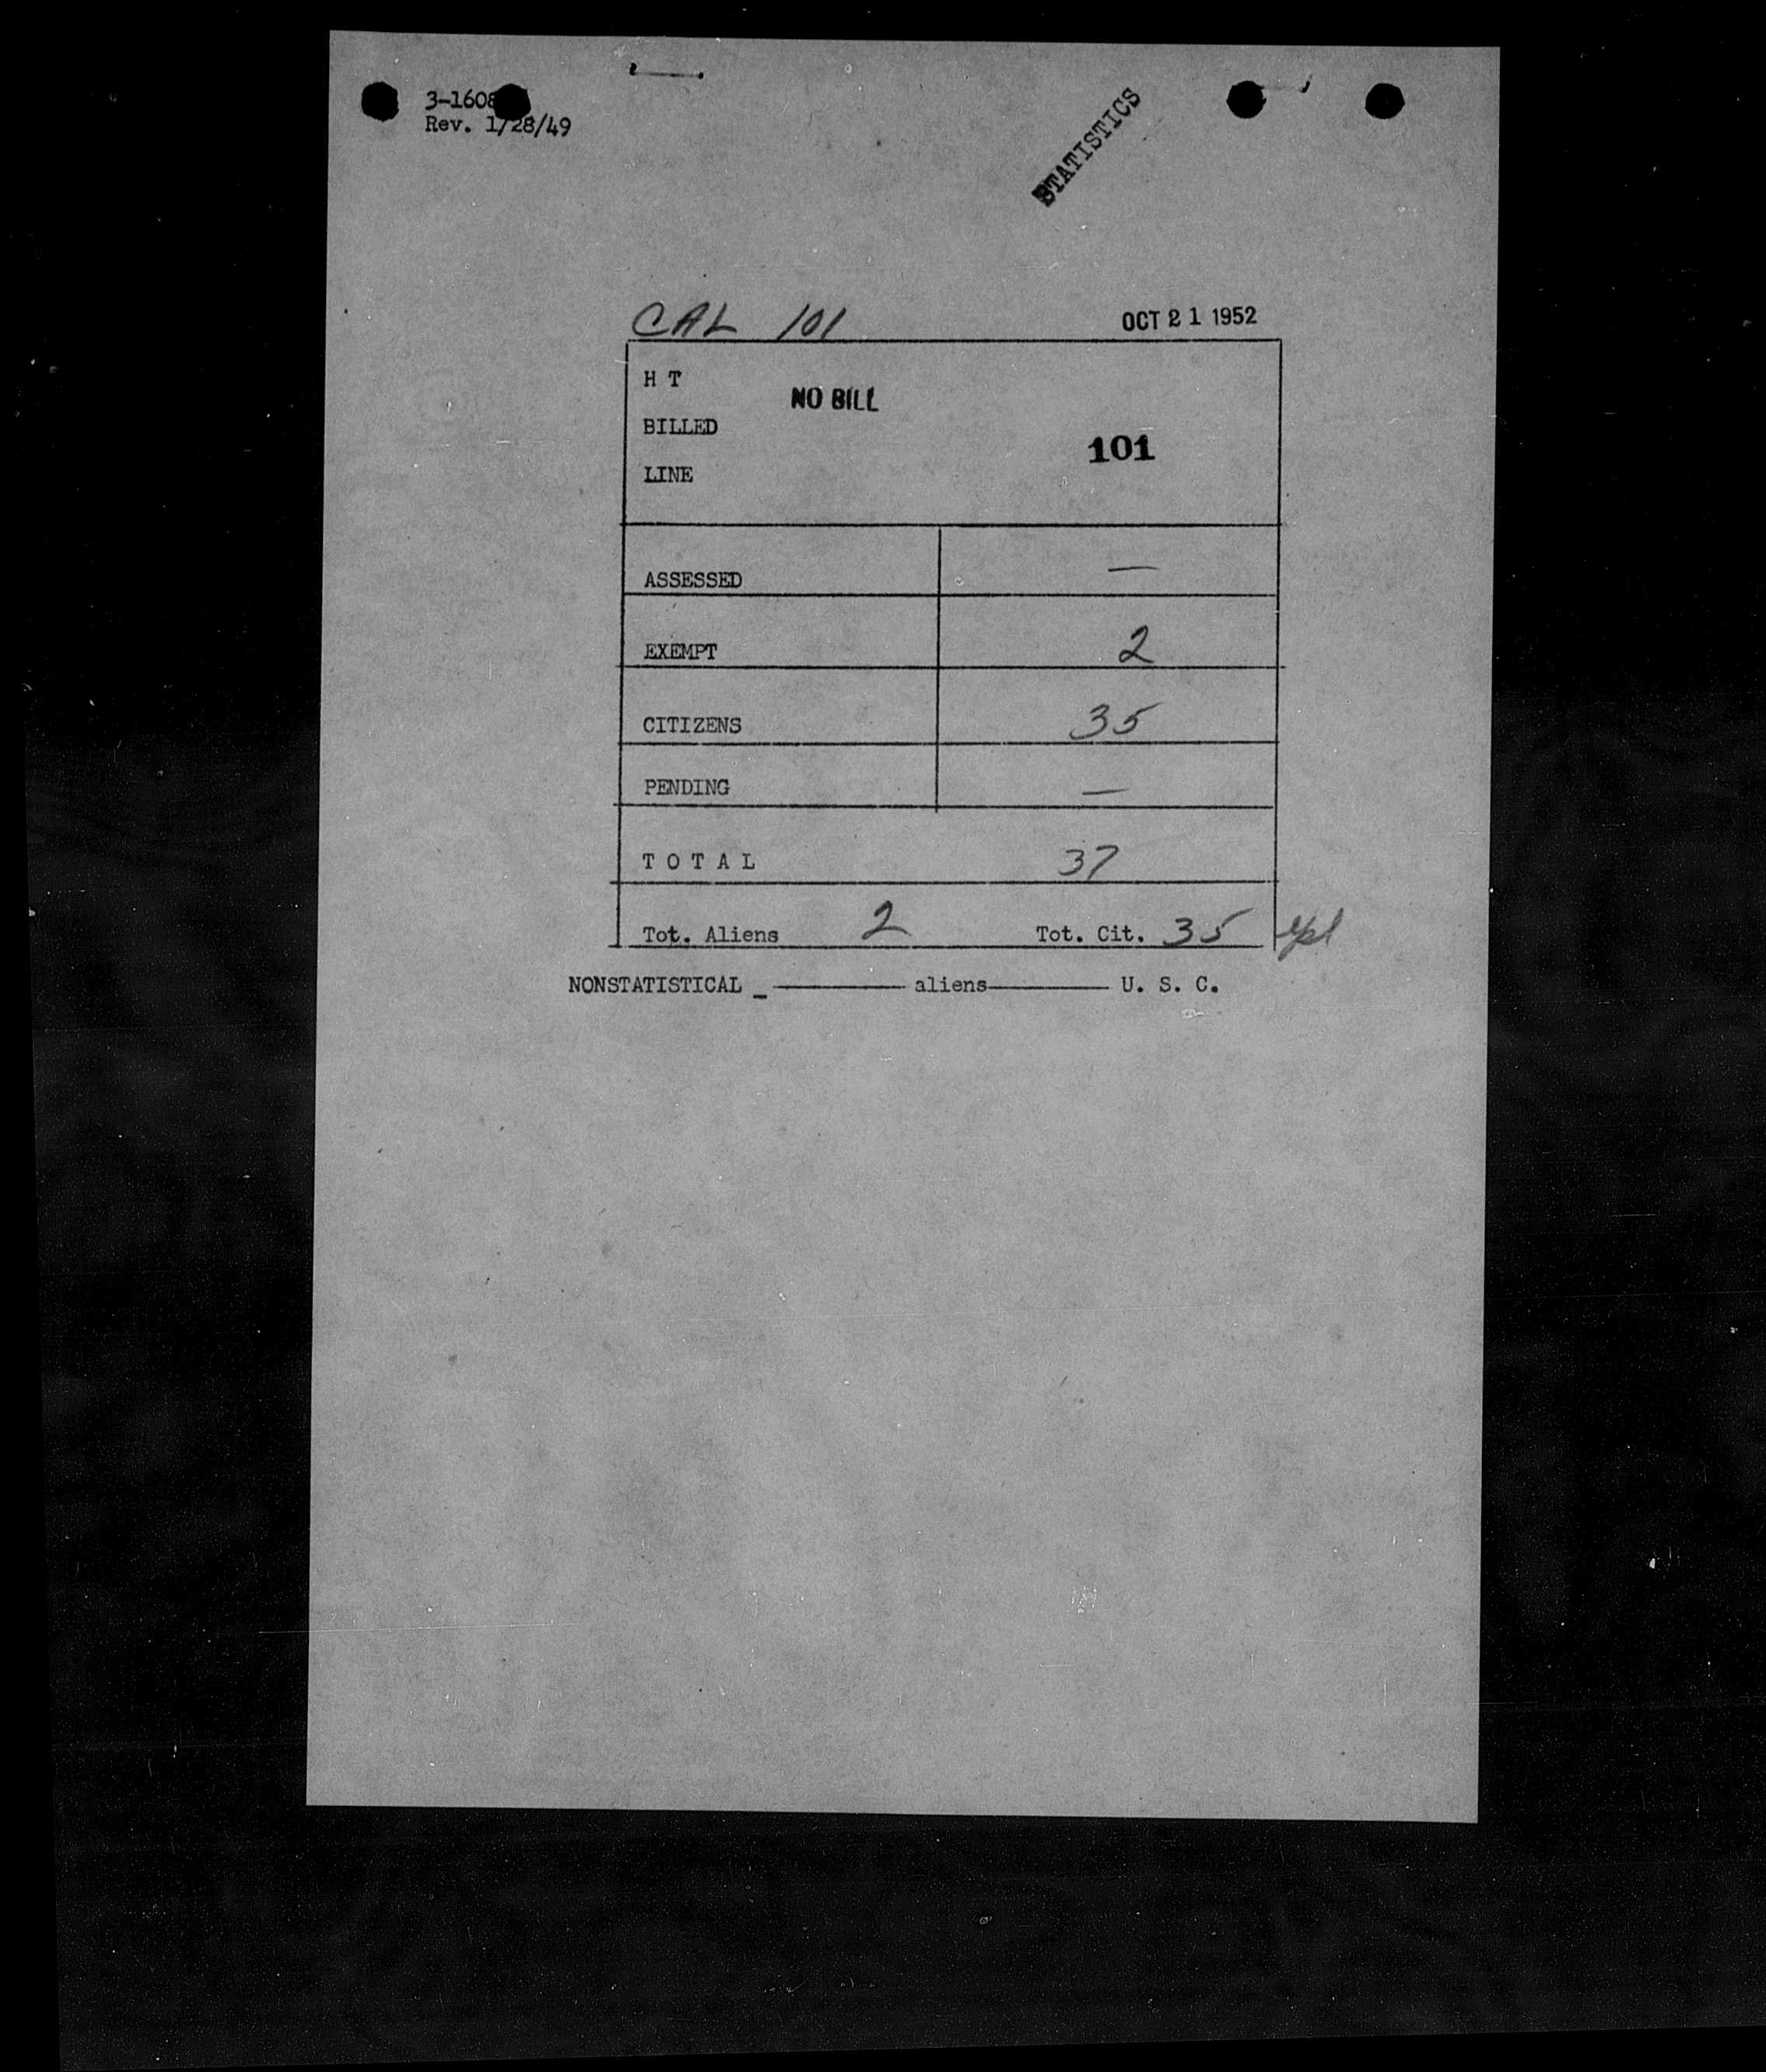 3-1608
Rev. 1/28/49
STATISTICS
CAL 101
OCT 21 1952
H T
NO BILL
BILLED
101
LINE
ASSESSED —
EXEMPT 2
CITIZENS 35
PENDING —
T O T A L 37
Tot. Aliens 2 Tot. Cit. 35
NONSTATISTICAL _ ———— aliens ———— U. S. C.